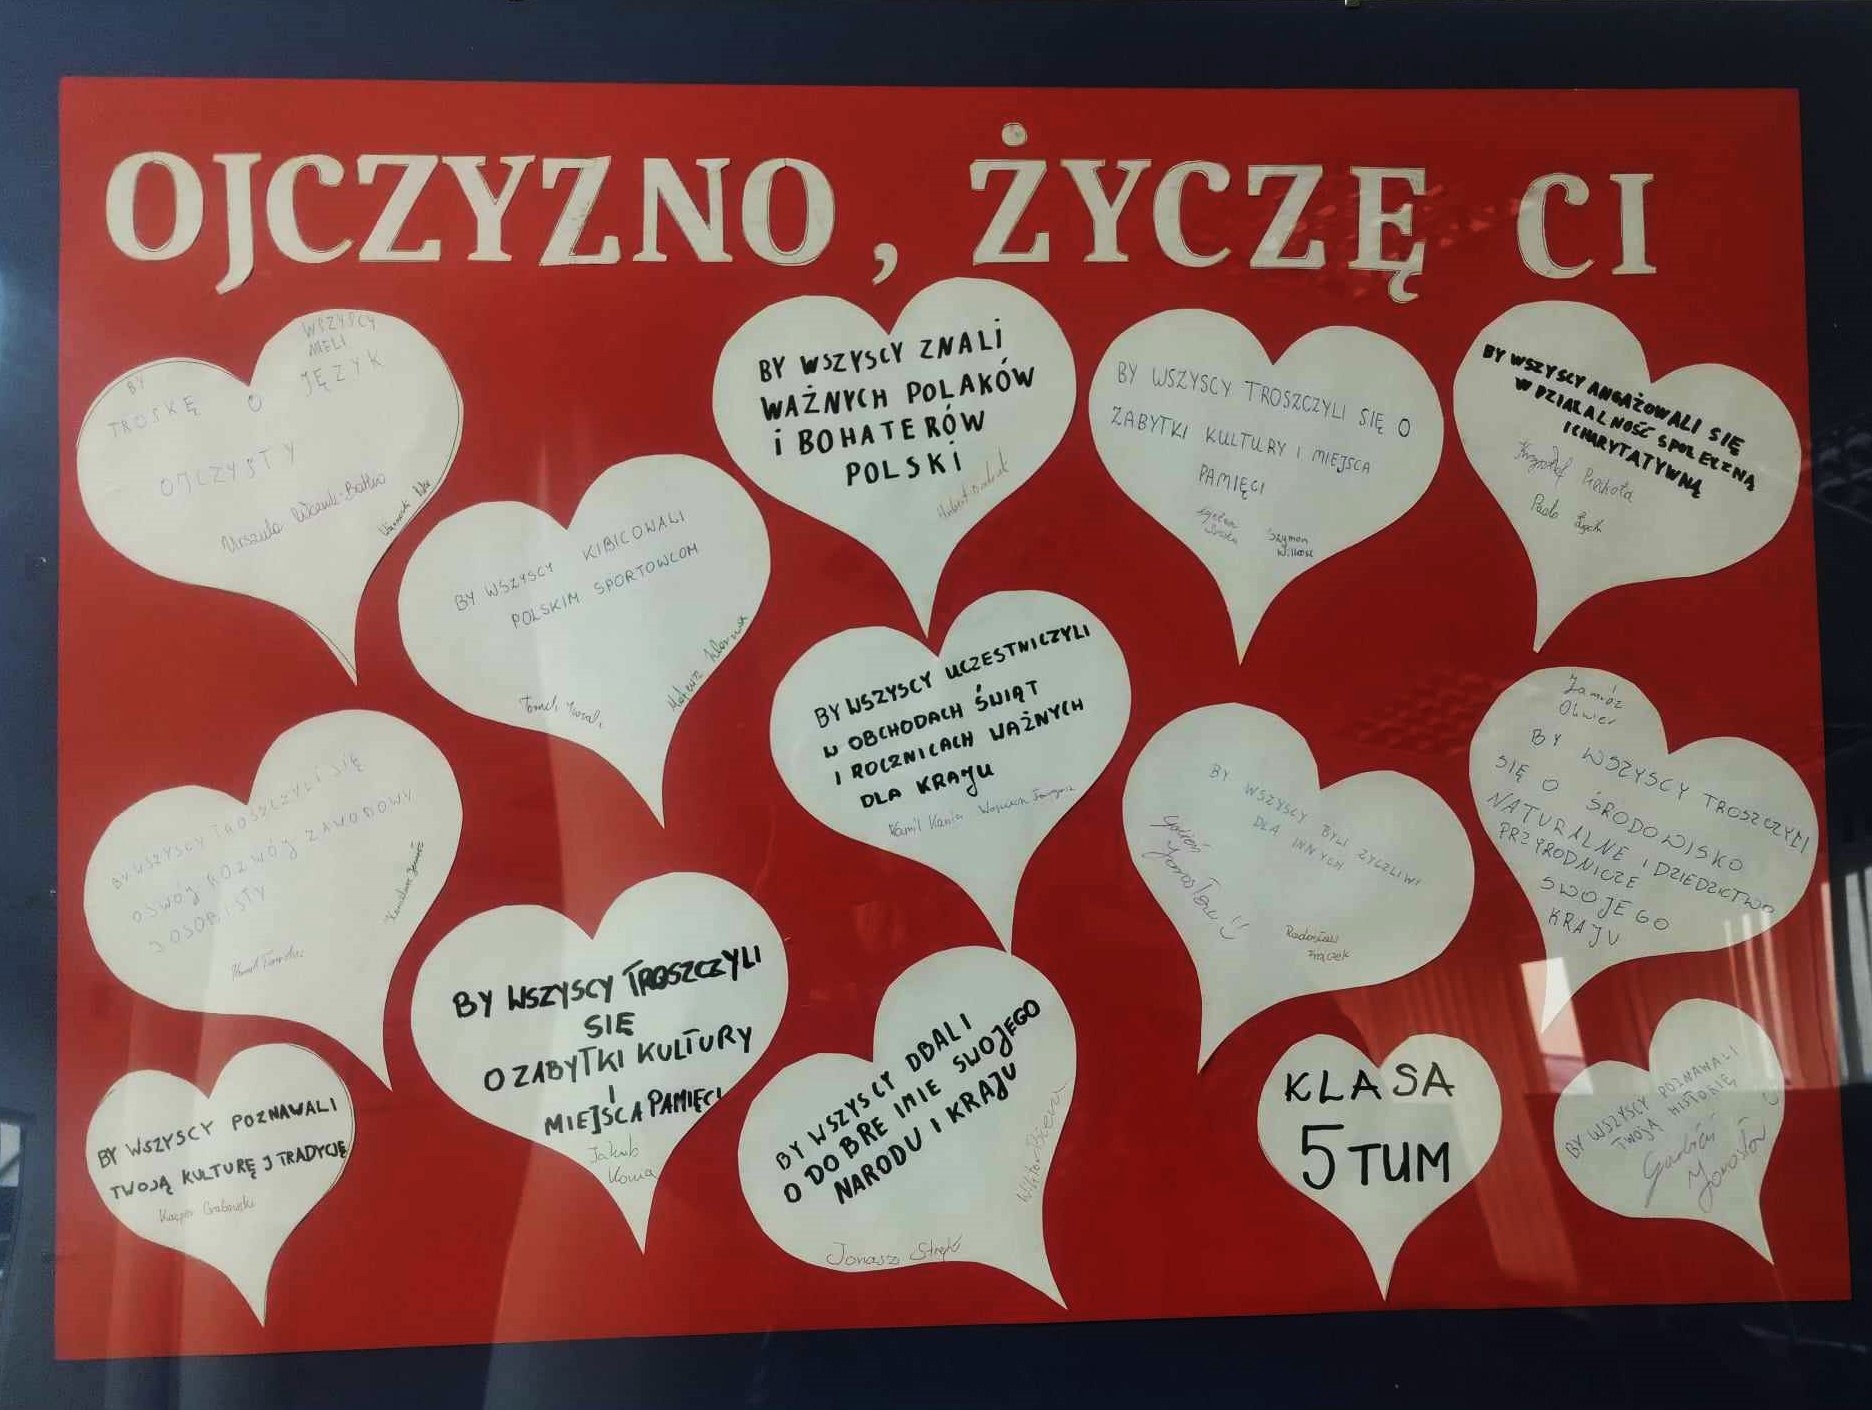 OJCZYZNO, ŻYCZĘ CI
WSZYSCY
MIELI
BY
TROSKĘ O JĘZYK
OJCZYSTY
Urszula
BY WSZYSCY KIBICOWALI
POLSKIM SPORTOWCOM
Mateusz
BY WSZYSCY ZNALI
WAŻNYCH POLAKÓW
i BOHATERÓW
POLSKI
Hubert
BY WSZYSCY TROSZCZYLI SIĘ O
ZABYTKI KULTURY I MIEJSCA
PAMIĘCI
Szymon
BY WSZYSCY ANGAŻOWALI SIĘ
W DZIAŁALNOŚĆ SPOŁECZNĄ
ICHARYTATYWNĄ
Krzysztof
BY WSZYSCY TROSZCZYLI SIĘ
OSWÓJ ROZWÓJ ZAWODOWY
I OSOBISTY
BY WSZYSCY UCZESTNICZYLI
W OBCHODACH ŚWIĄT
I ROCZNICACH WAŻNYCH
DLA KRAJU
Kamil Kania
BY WSZYSCY BYLI ŻYCZLIWI
DLA INNYCH
Gardoń
Jarosław
Radosław
Frączek
Zamróz
Oliwier
BY WSZYSCY TROSZCZYLI
SIĘ O ŚRODOWISKO
NATURALNE I DZIEDZICTWO
PRZYRODNICZE
SWOJEGO
KRAJU
BY WSZYSCY TROSZCZYLI
SIĘ
O ZABYTKI KULTURY
I
MIEJSCA PAMIĘCI
Jakub
Kania
BY WSZYSCY POZNAWALI
TWOJĄ KULTURĘ J TRADYCJĘ
Kacper Grabowski
BY WSZYSCY DBALI
O DOBRE IMIE SWOJEGO
NARODU I KRAJU
Wiktor
Jonasz
KLASA
5 TUM
BY WSZYSCY POZNAWALI
TWOJĄ HISTORIĘ
Gardoń
Jarosław